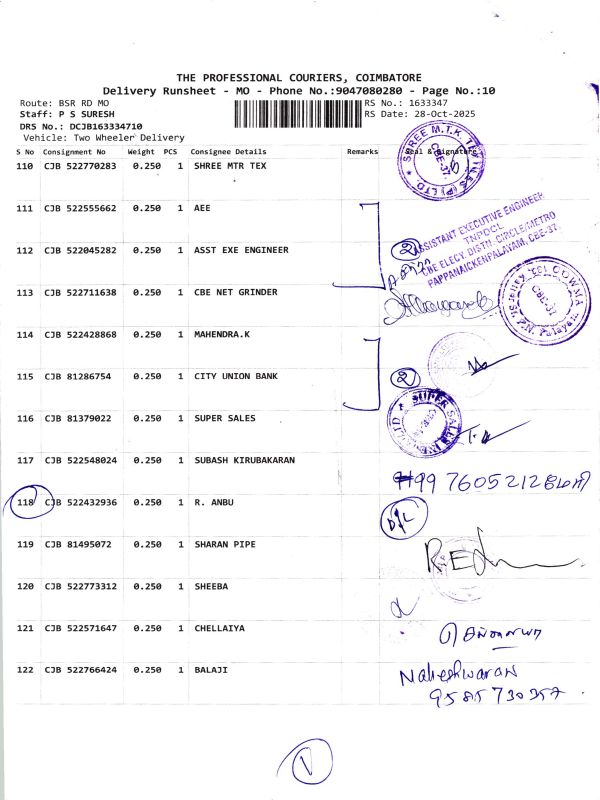 THE PROFESSIONAL COURIERS, COIMBATORE
Delivery Runsheet - MO - Phone No.:9047080280 - Page No.:10
Route: BSR RD MO
RS No.: 1633347
Staff: P S SURESH
RS Date: 28-Oct-2025
DRS No.: DCJB163334710
Vehicle: Two Wheeler Delivery
S No Consignment No Weight PCS Consignee Details Remarks Seal & Signature
110 CJB 522770283 0.250 1 SHREE MTR TEX
SHREE M.T.K TEXTILES (P) LTD. CBE-37
111 CJB 522555662 0.250 1 AEE
ASSISTANT EXECUTIVE ENGINEER
TNPDCL
CBE ELECY. DISTN. CIRCLE/METRO
PAPPANAICKENPALAYAM, CBE-37
112 CJB 522045282 0.250 1 ASST EXE ENGINEER
2
113 CJB 522711638 0.250 1 CBE NET GRINDER
CBE-37
114 CJB 522428868 0.250 1 MAHENDRA.K
115 CJB 81286754 0.250 1 CITY UNION BANK
2
116 CJB 81379022 0.250 1 SUPER SALES
SUPER SALES
117 CJB 522548024 0.250 1 SUBASH KIRUBAKARAN
99 76052128
118 CJB 522432936 0.250 1 R. ANBU
D/L
119 CJB 81495072 0.250 1 SHARAN PIPE
120 CJB 522773312 0.250 1 SHEEBA
121 CJB 522571647 0.250 1 CHELLAIYA
122 CJB 522766424 0.250 1 BALAJI
Maheshwaran
9585730357
1